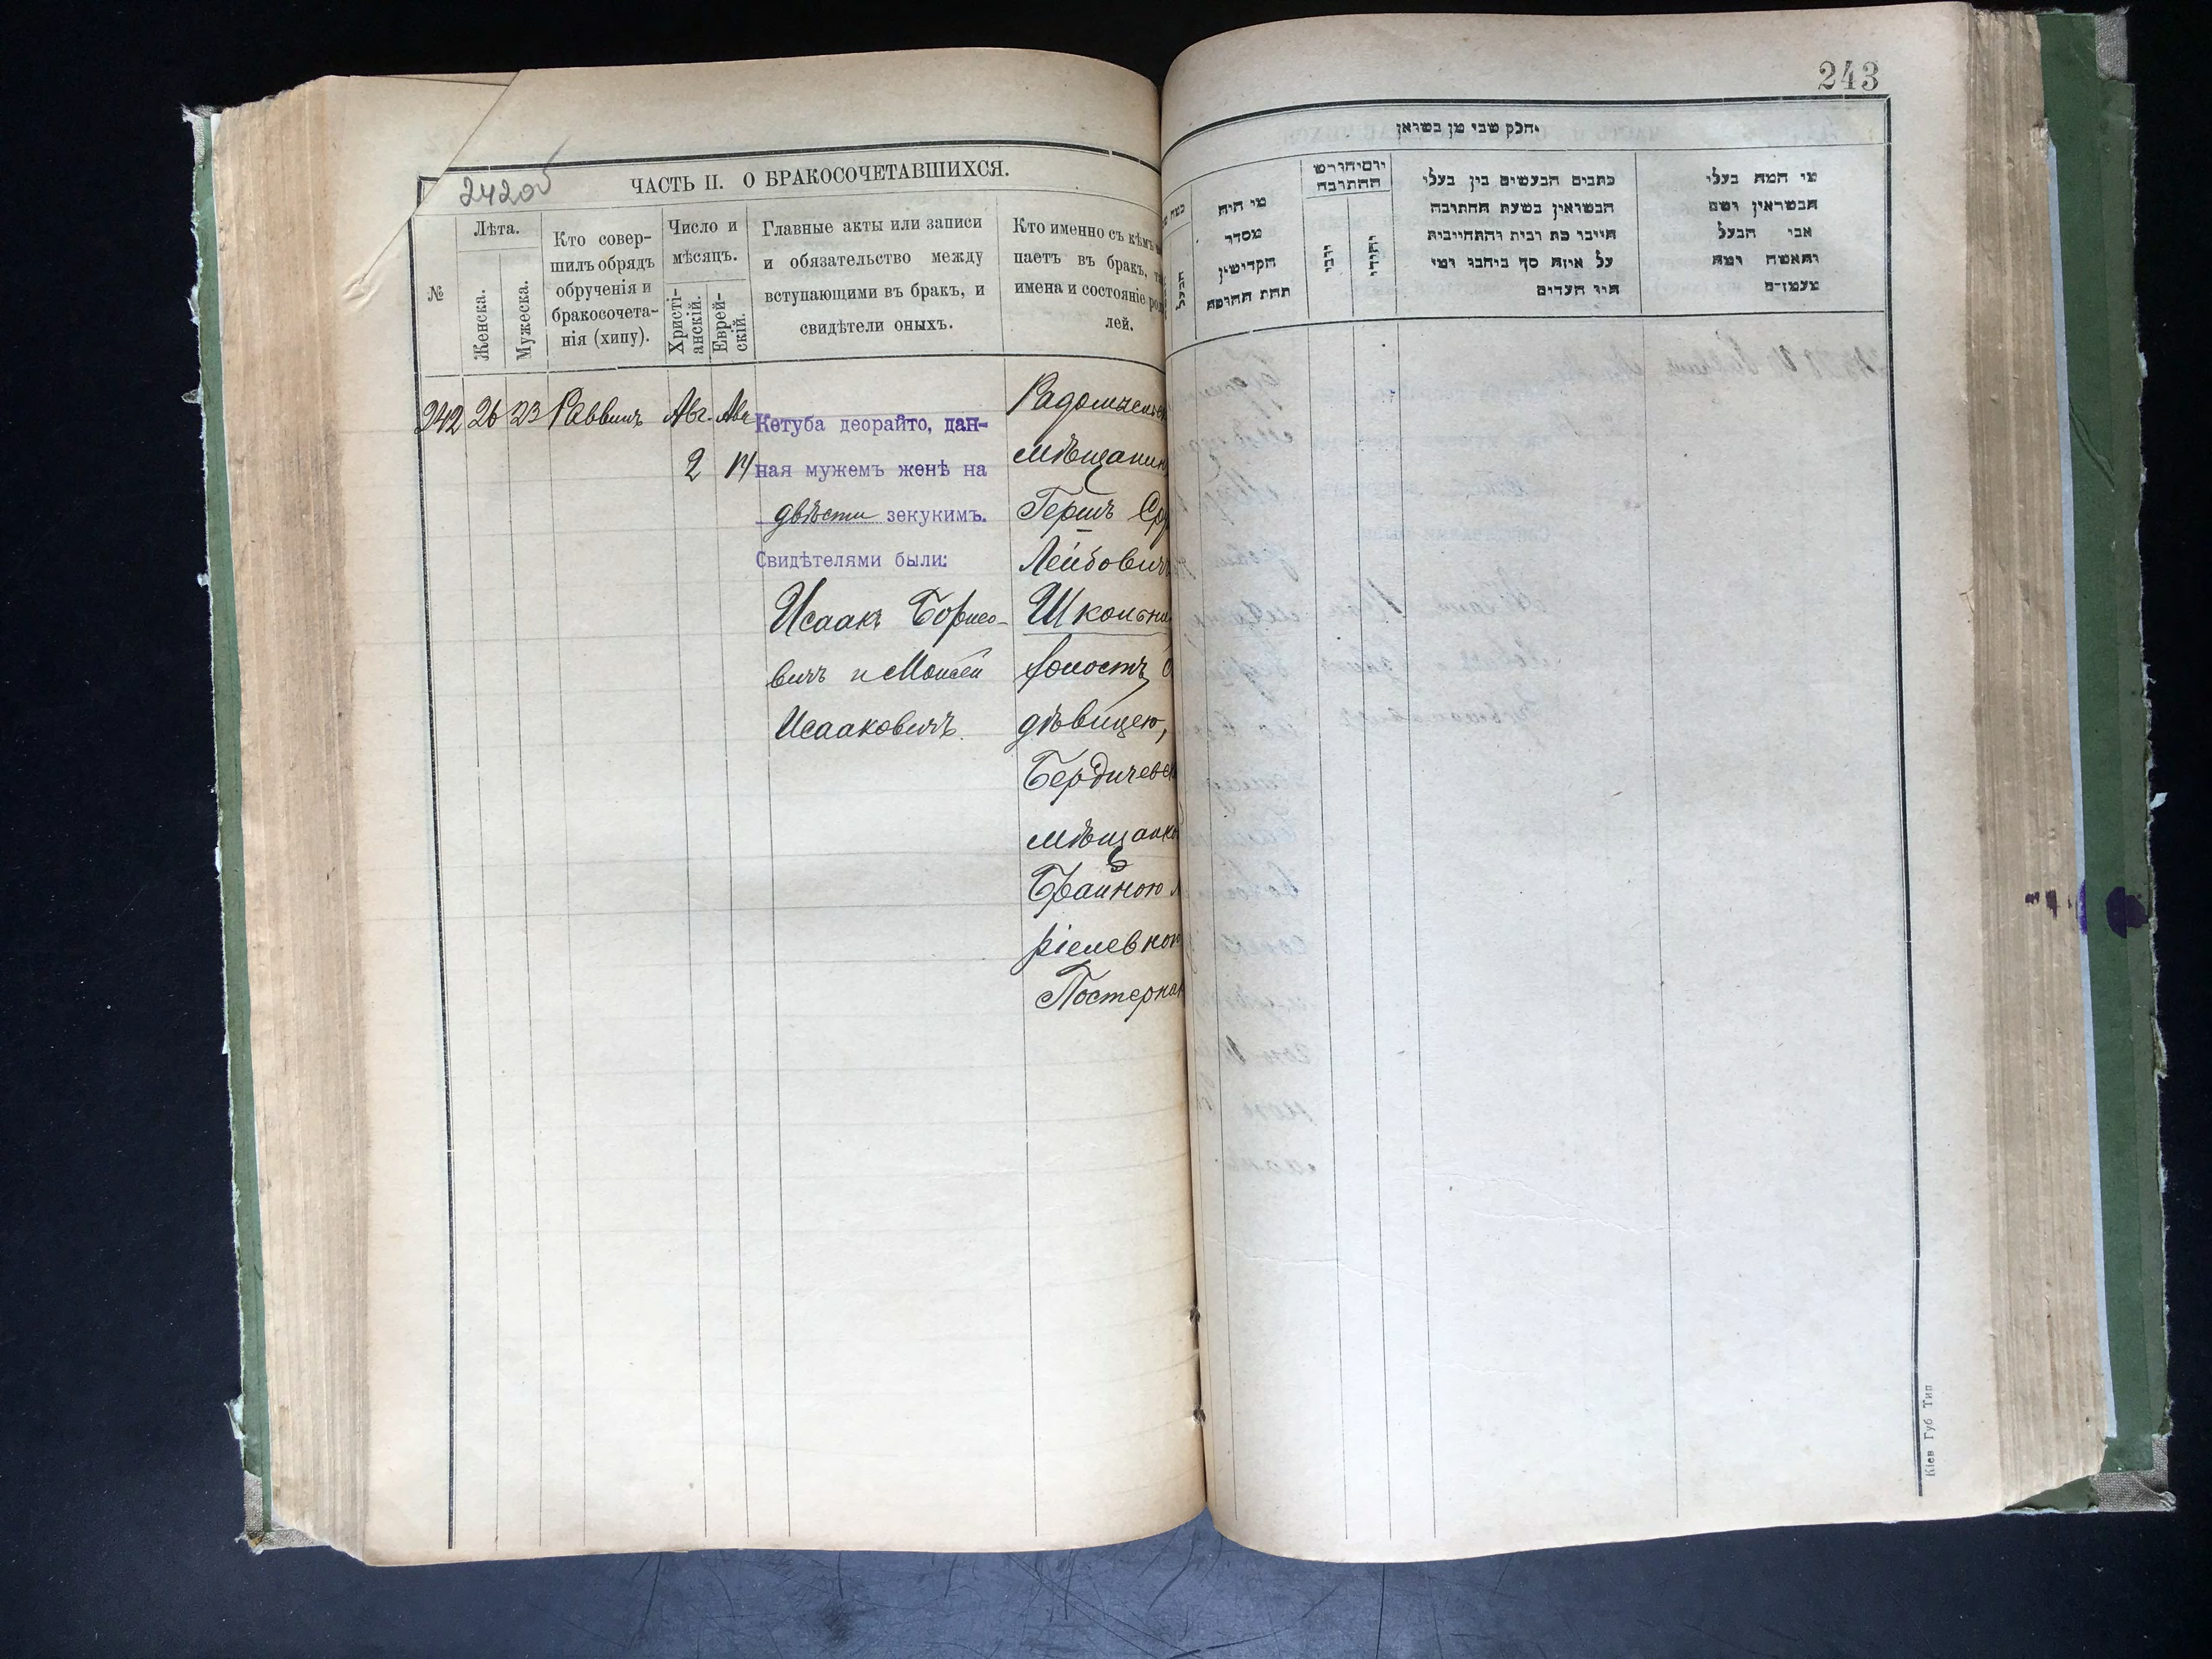 242об
ЧАСТЬ II. О БРАКОСОЧЕТАВШИХСЯ.
№
Лѣта.
Женска.
Мужеска.
Кто совер-
шилъ обрядъ
обрученія и
бракосочета-
нія (хипу).
Число и
мѣсяцъ.
Христі-
анскій.
Еврей-
скій.
Главные акты или записи
и обязательство между
вступающими въ бракъ, и
свидѣтели оныхъ.
Кто именно съ кѣмъ
паетъ въ бракъ,
имена и состояніе
лей.
242 26 23 Раввинъ Авг. Авъ
2 14
Кетуба деорайто, дан-
ная мужемъ женѣ на
двѣсти зекукимъ.
Свидѣтелями были:
Исаакъ Борисо-
вичъ и Моисей
Исааковичъ.
Радомысльск
мѣщанин
Гершъ Ср
Лейбович
Школьни
холостъ, с
дѣвицею,
Бердичевск
мѣщанко
Брайною
ріелевною
Постернак
243
חלק שני מן נשואין
מי היה
מסדר
הקדושין
תחת החופה
הבעל
יום וחודש
החתונה
נוצרי
יהודי
כתבים הנעשים בין בעלי
הנשואין בשעת החתונה
היינו כת ובית והתחייבות
על איזה סך ביחבו ומי
היו העדים
מי המה בעלי
הנשואין ושם
אבי הבעל
והאשה ומה
מעמדם
Кіев Губ Тип